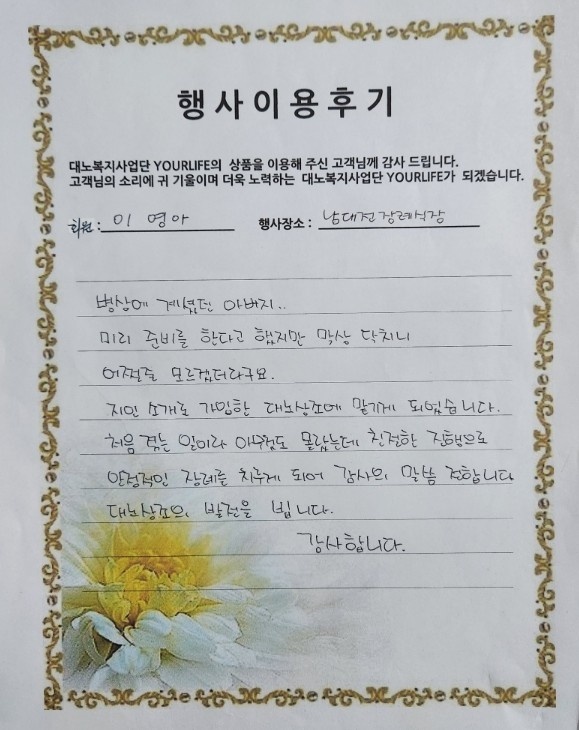 행사이용후기
대노복지사업단 YOURLIFE의 상품을 이용해 주신 고객님께 감사 드립니다.
고객님의 소리에 귀 기울이며 더욱 노력하는 대노복지사업단 YOURLIFE가 되겠습니다.
회원 : 이 영아 행사장소 : 남대전장례식장
병상에 계셨던 아버지..
미리 준비를 한다고 했지만 막상 닥치니
어쩔줄 모르겠더라구요.
지인 소개로 가입한 대노상조에 맡기게 되었습니다.
처음 겪는 일이라 아무것도 몰랐는데 친절한 진행으로
안정적인 장례를 치루게 되어 감사의 말씀 전합니다
대노상조의 발전을 빕니다.
감사합니다.